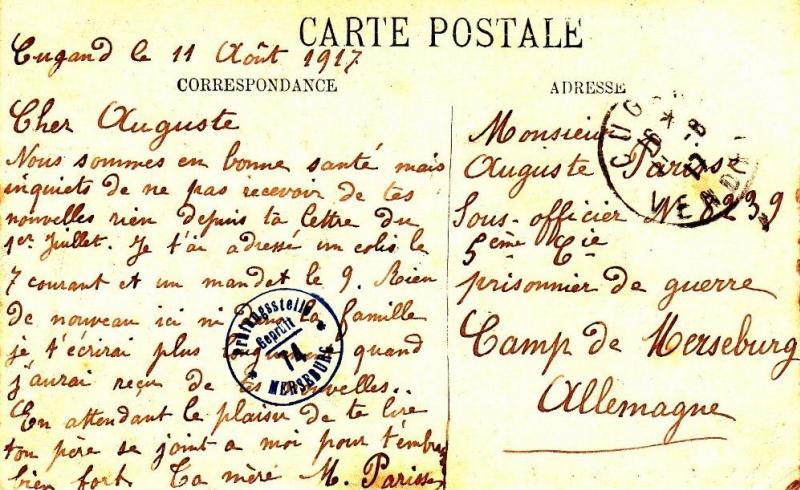 CARTE POSTALE
Cugand le 11 Août 1917
CORRESPONDANCE
Cher Auguste
Nous sommes en bonne santé mais
inquiets de ne pas recevoir de tes
nouvelles rien depuis ta lettre du
1er Juillet. Je t'ai adressé un colis le
7 courant et un mandat le 9. Rien
de nouveau ici ni dans la famille
je t'écrirai plus longuement quand
j'aurai reçu de tes nouvelles..
En attendant le plaisir de te lire
ton père se joint a moi pour t'embra
bien fort Ta mère M. Parisse
Prüfungsstelle
Geprüft
14
MERSEBURG
ADRESSE
CUG
VENDÉE
Monsieur
Auguste Paris
Sous-officier N 8239
5ème Cie
prisonnier de guerre
Camp de Merseburg
Allemagne